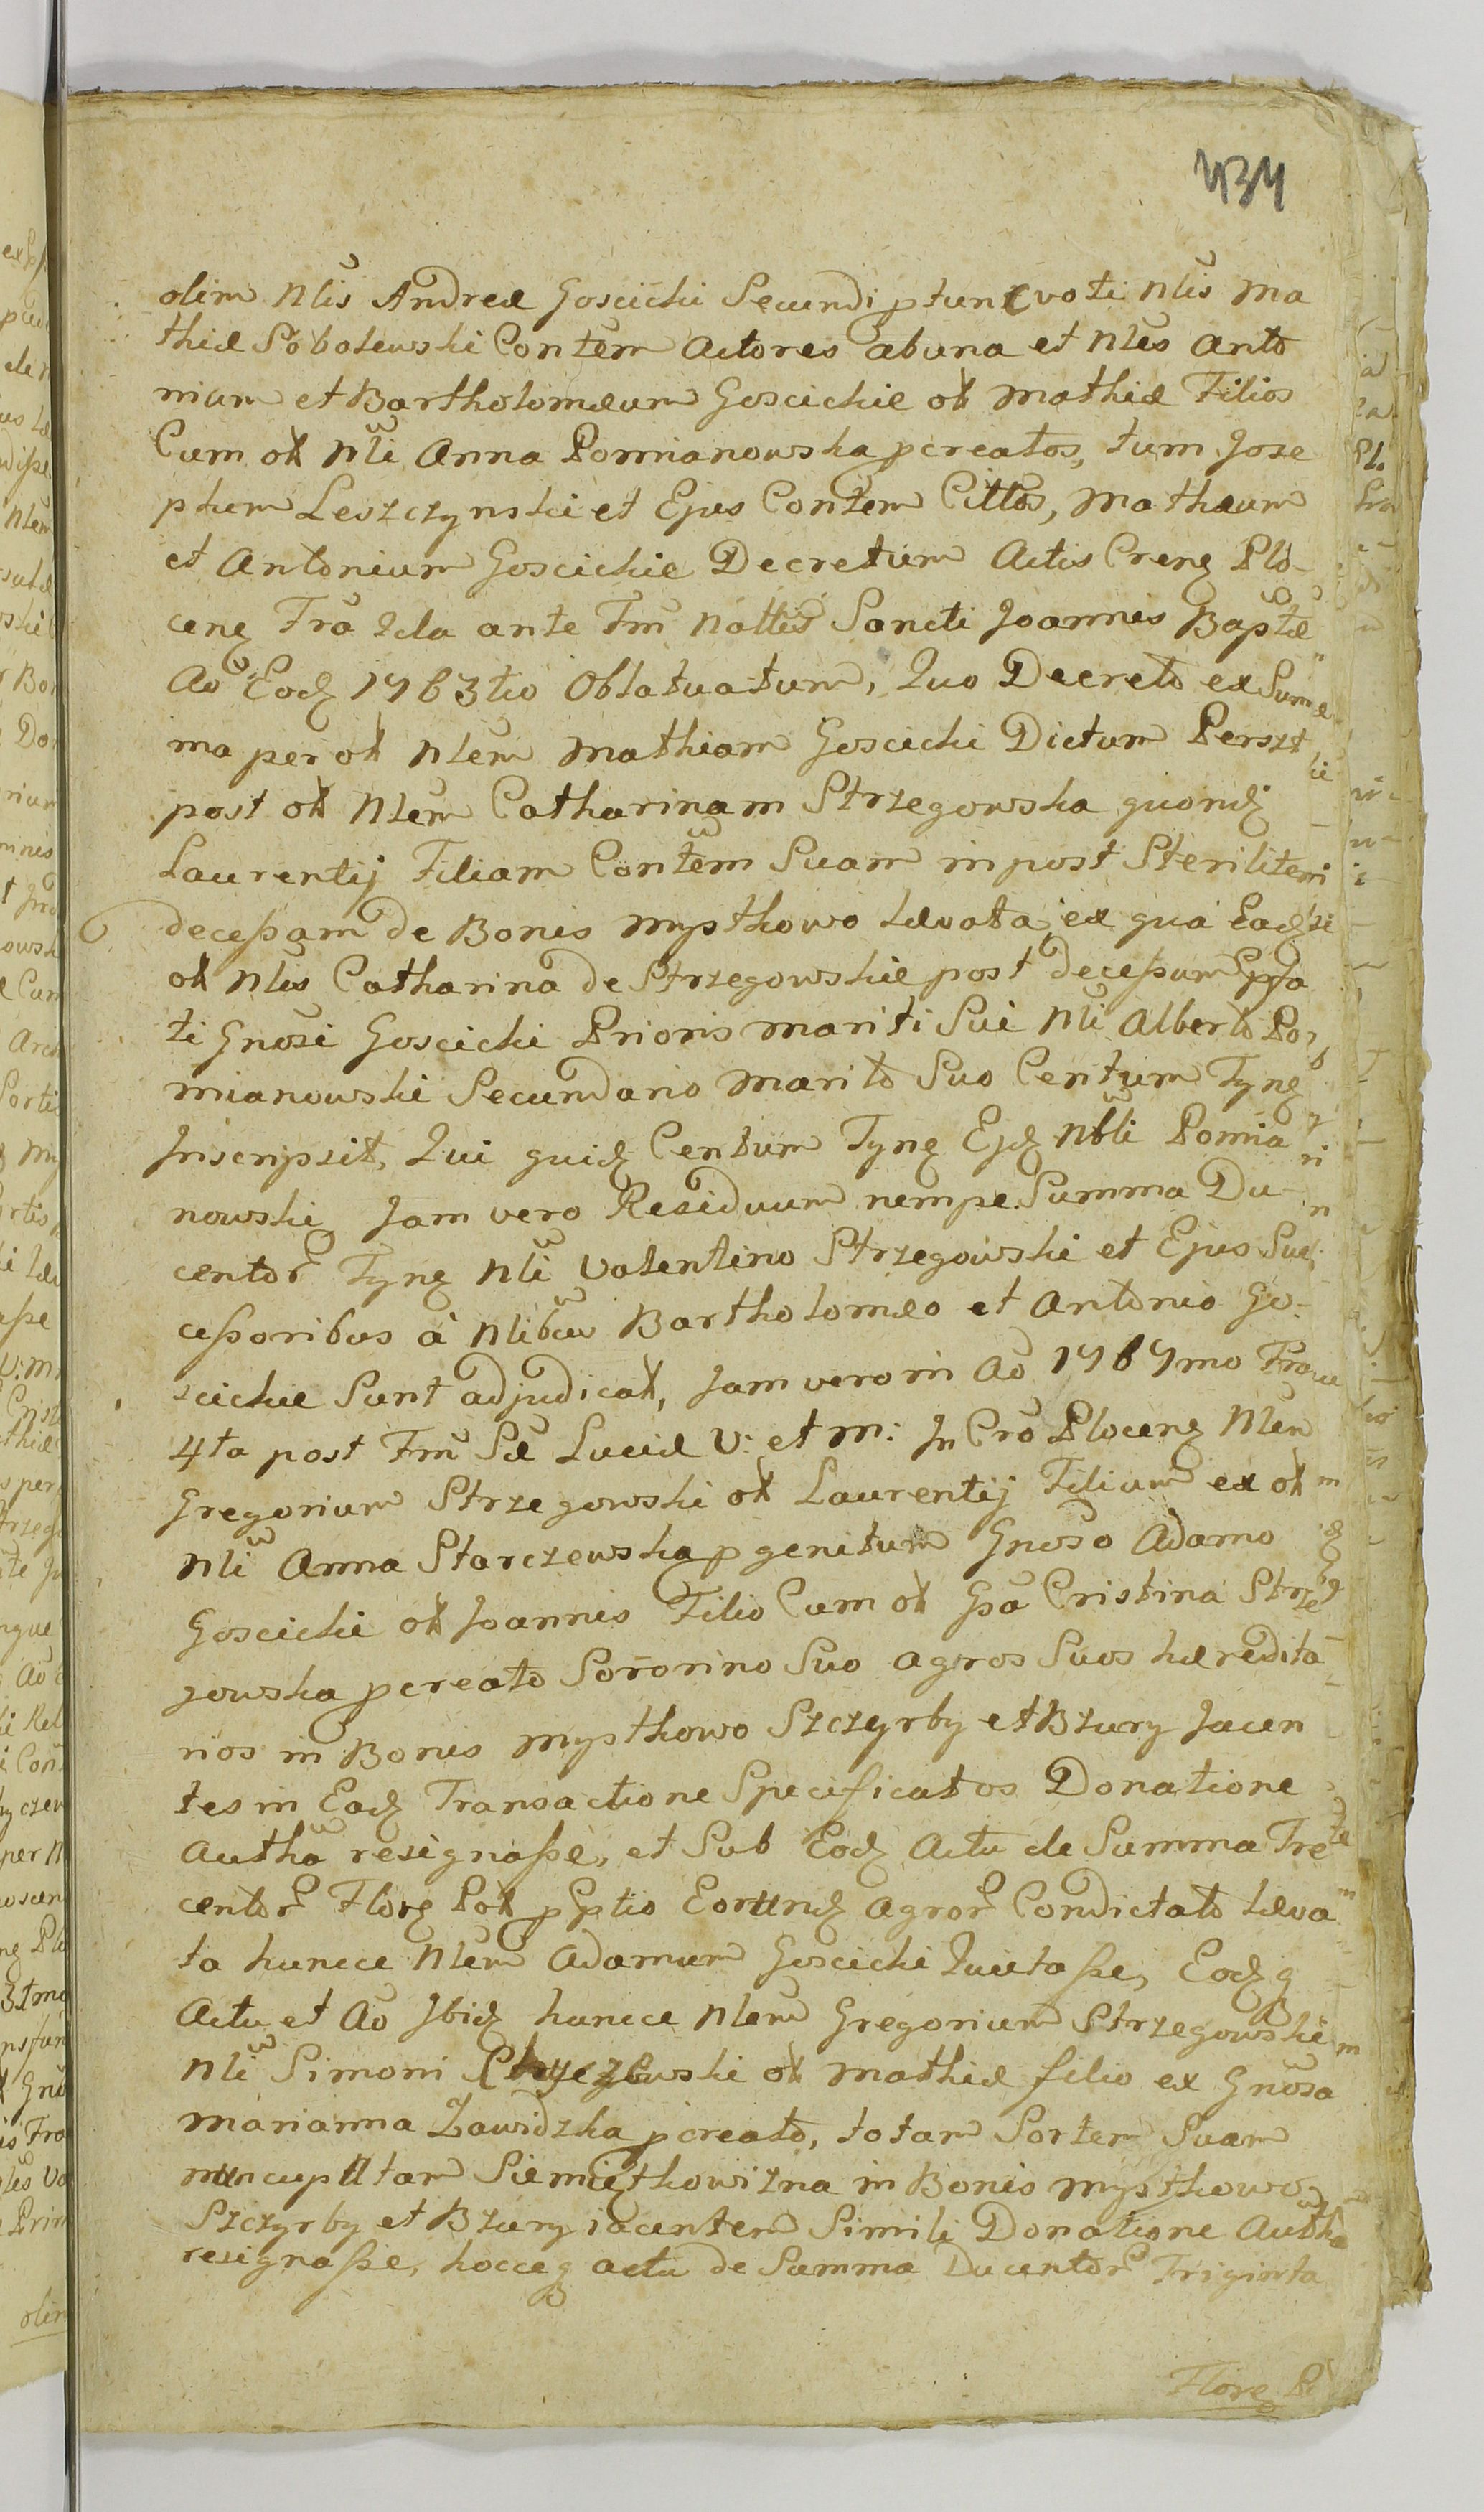 434
olim Nlis Andreæ Goscicki Secundi ptunc voti Nlis Ma
thiæ Sobolewski Contem Actores abuna et Nles Anto
nium et Bartholomæum Goscickie olt Mathiæ Filios
Cum olt Nli Anna Pomianowska pcreatos, tum Jose
phum Leszczynski et Ejus Contem Cittos, Mathæum
et Antonium Goscickie Decretum Actis Crenz Plo-
cenz Fra 2da ante Fm Nattis Sancti Joannis Baptæ
Ao Eodz 1763tio Oblatuatum, Quo Decreto ex Sum
ma per olt Nlem Mathiam Goscicki Dictum Perszt
post olt Nlem Catharinam Strzegowska quondz
Laurentij Filiam Contem Suam inpost Steriliter
deceßam de Bonis Mysthowo Lævata, ex qua Eadz
olt Nlis Catharina de Strzegowskie post deceßum Ppsa
ti Gnosi Goscicki Prioris mariti Sui Nli Alberto Po
mianowski Secundario Marito Suo Centum Tynz
Inscripsit, Qui quidz Centum Tynz Ejdz Nbli Pomia
nowski, Jam vero Residuum nempe Summa Du-
centor Tynz Nli Valentino Strzegowski et Ejus Suc
ceßoribus à Nlibus Bartholomæo et Antonio Go-
scickie Sunt adjudicat, Jam vero in Ao 1767mo Fra
4ta post Fm Sæ Luciæ V: et M: In Cro Plocenz Nlem
Gregorium Strzegowski olt Laurentij Filium ex olt
Nli Anna Starczewska pgenitum Gnoso Adamo
Goscicki olt Joannis Filio Cum olt Gsa Cristina Strze
gowska pcreato Sororino Suo agros Suos hæredita
rios in Bonis Mysthowo Szczyrby et Bzury Jacen
tes in Eadz Transactione Specificatos Donatione
Autha resignaße, et Sub Eodz Actu de Summa Tre
centor Florz Pol pPptio Eorundz agror Condictato Læva
ta huncce Nlem Adamum Goscicki Quietaße, Eodz q
Actu et Ao Ibidz huncce Nlem Gregorium Strzegowski
Nli Simoni Chyczewski olt Mathiæ filio ex Gnosa
Marianna Zawidzka pcreato, totam Sortem Suam
nuncupttam Siemięthowizna in Bonis Mysthowo
Szczyrby et Bzury iacentem Simili Donatione Autha
resignaße, hocceq actu de Summa Ducentor Triginta
Florz Pl